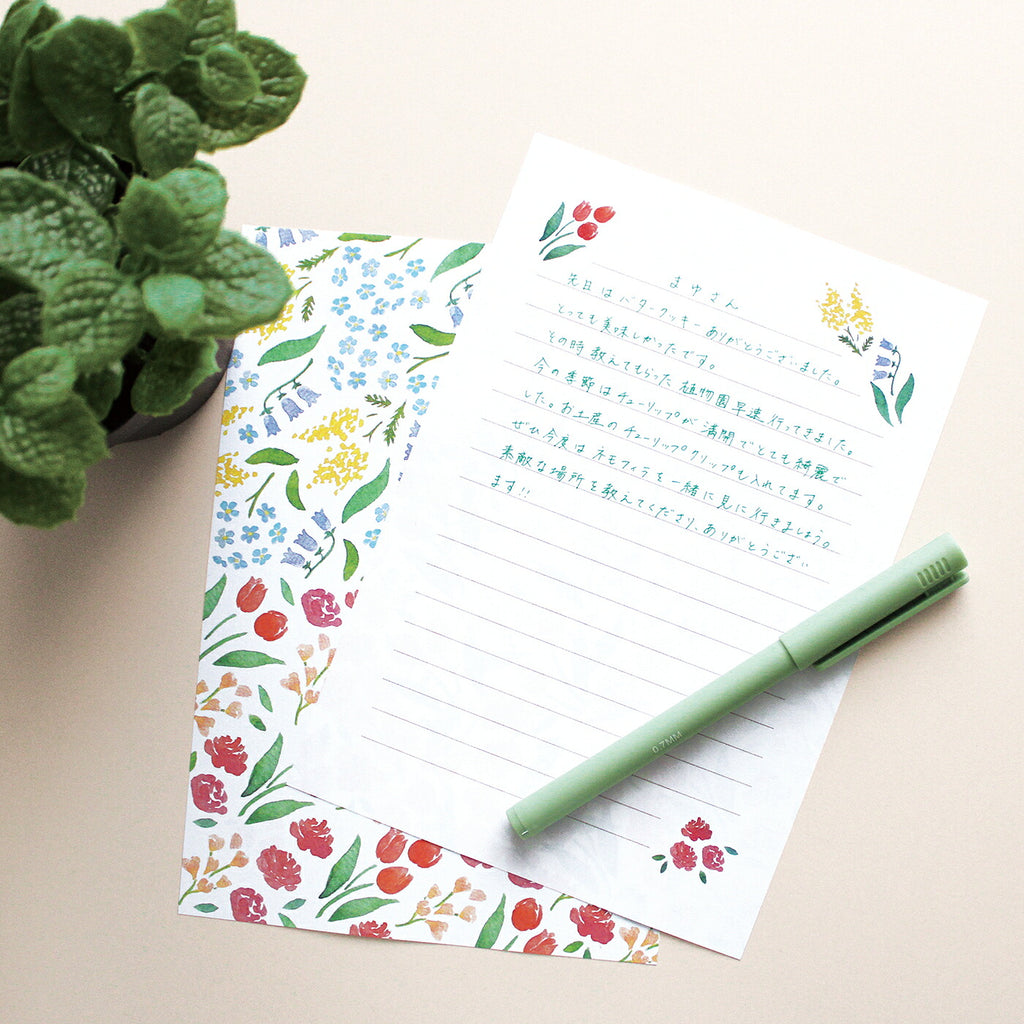 まゆさん
先日はバタークッキーありがとうございました。
とっても美味しかったです。
その時教えてもらった植物園早速行ってきました。
今の季節はチューリップが満開でとても綺麗で
した。お土産のチューリップクリップも入れてます。
ぜひ今度はネモフィラを一緒に見に行きましょう。
素敵な場所を教えてくださり、ありがとうござい
ます!!
0.7MM